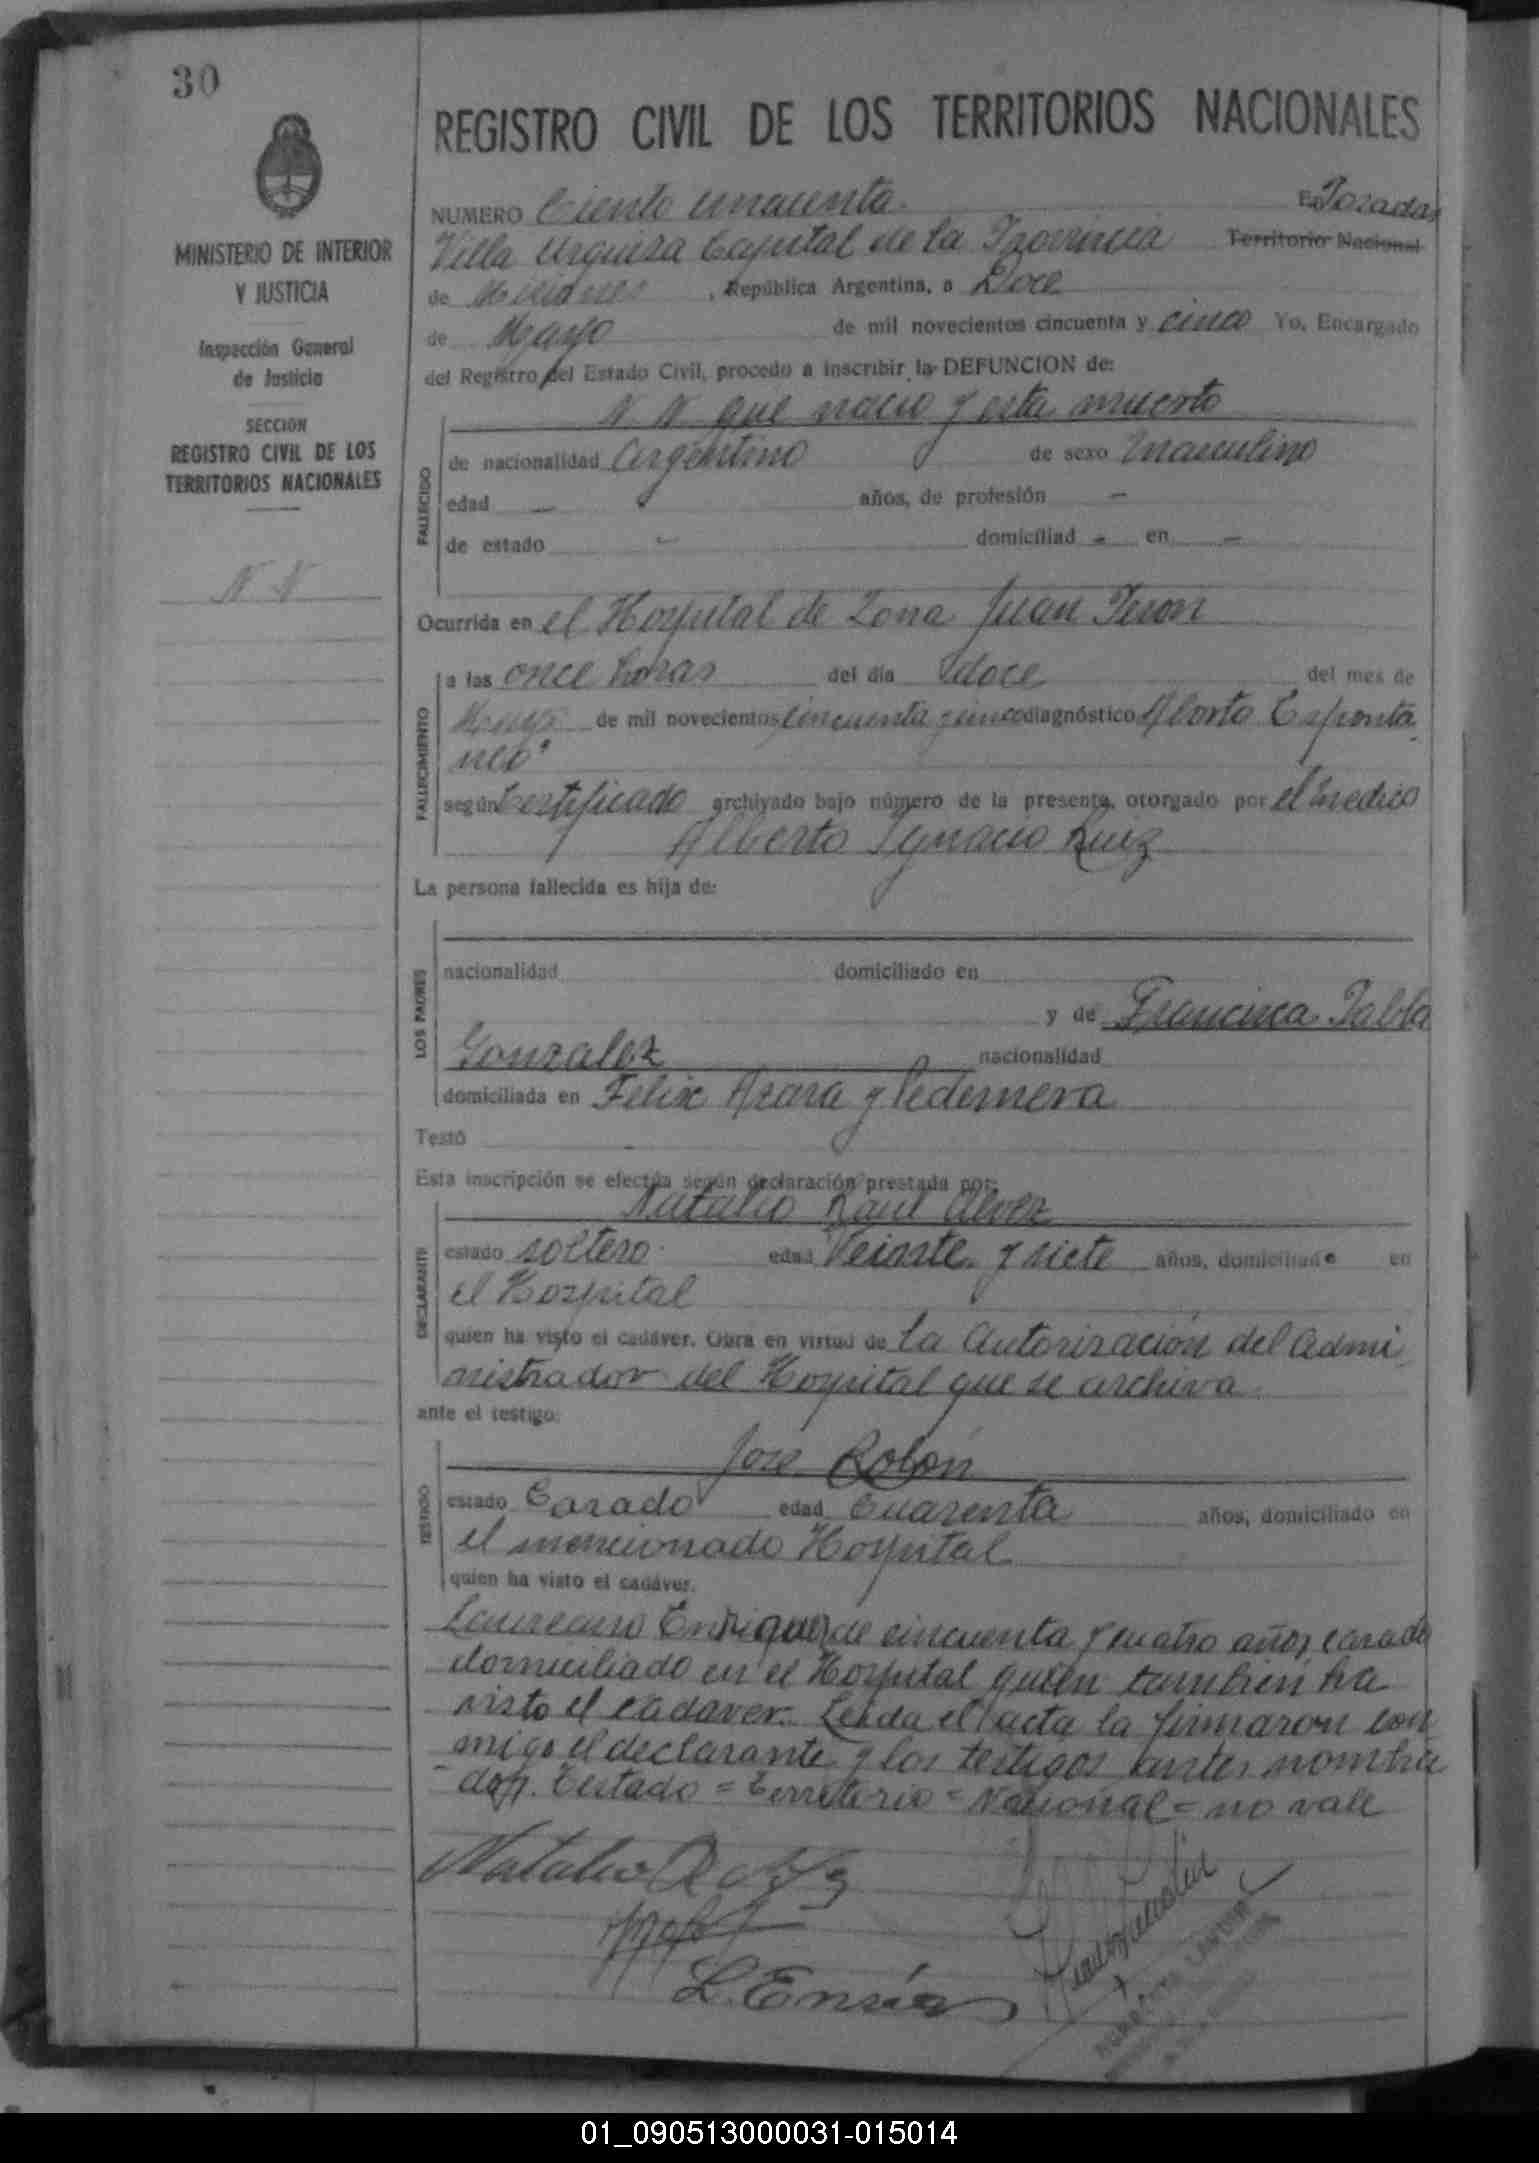 30
REGISTRO CIVIL DE LOS TERRITORIOS NACIONALES
MINISTERIO DE INTERIOR
Y JUSTICIA
Inspección General
de Justicia
SECCION
REGISTRO CIVIL DE LOS
TERRITORIOS NACIONALES
N. N
NUMERO Ciento cincuenta. En Posadas
Villa Urquiza Capital de la Provincia Territorio Nacional
de Misiones, República Argentina, a Doce
de Mayo de mil novecientos cincuenta y cinco Yo, Encargado
del Registro del Estado Civil, procedo a inscribir la DEFUNCION de:
N. N. que nacio y esta muerto
FALLECIDO
de nacionalidad Argentino de sexo Masculino
edad — años, de profesión —
de estado — domiciliad - en —
Ocurrida en el Hospital de Zona Juan Peron
FALLECIMIENTO
a las once horas del día doce del mes de
Mayo de mil novecientos cincuenta y cinco diagnóstico Aborto Esponta
neo"
según Certificado archivado bajo número de la presente, otorgado por el medico
Alberto Ignacio Ruiz
La persona fallecida es hija de:
LOS PADRES
nacionalidad domiciliado en
y de Francisca Pabla
Gonzalez nacionalidad
domiciliada en Felix Azara y Pedernera
Testó -
Esta inscripción se efectúa según declaración prestada por:
Natalio Raul Alvez
DECLARANTE
estado soltero. edad Veinte y siete años, domiciliado en
el Hospital
quien ha visto el cadáver. Obra en virtud de la Autorización del Admi
nistrador del Hospital que se archiva.
ante el testigo:
José Rolón
TESTIGO
estado Casado edad Cuarenta años, domiciliado en
el mencionado Hospital
quien ha visto el cadáver.
Laureano Enriquez de cincuenta y cuatro años casado
domiciliado en el Hospital quien tambien ha
visto el cadaver. Leida el acta la firmaron con
migo el declarante y los testigos antes nombra
dos. Testado = Territorio = Nacional = no vale
Natalio R
L. Enri
01_090513000031-015014